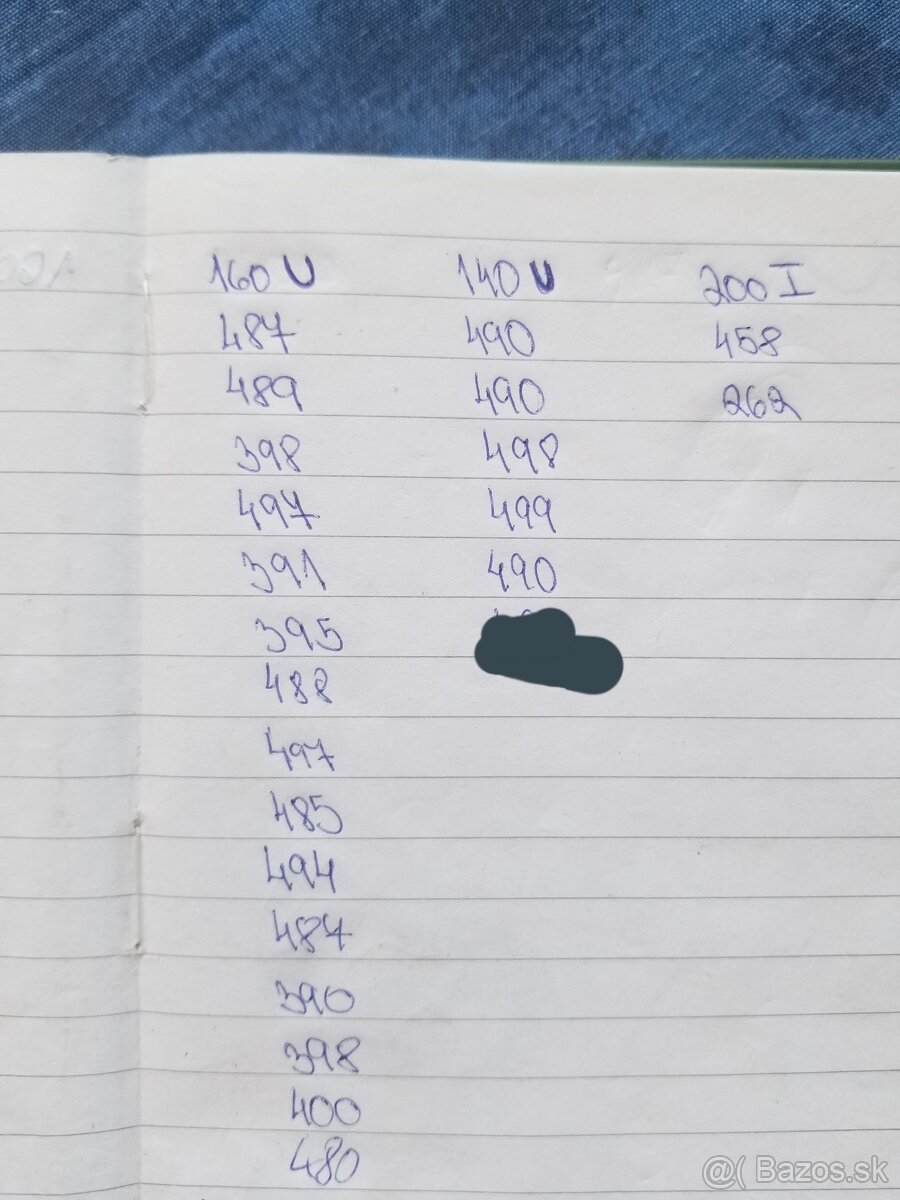 160 U 140 U 200 I
487 490 458
489 490 262
398 498
497 499
391 490
395
488
497
485
494
487
390
398
400
480
@( Bazos.sk